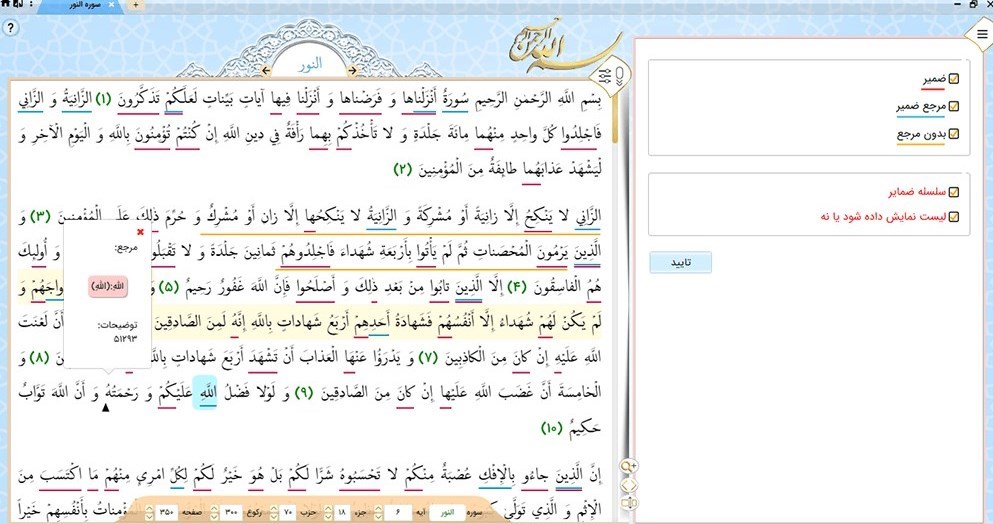 سوره النور
النور
?
بِسْمِ اللَّهِ الرَّحْمٰنِ الرَّحِيمِ سُورَةٌ أَنْزَلْناها وَ فَرَضْناها وَ أَنْزَلْنا فِيها آياتٍ بَيِّناتٍ لَعَلَّكُمْ تَذَكَّرُونَ (۱) الزَّانِيَةُ وَ الزَّانِي
فَاجْلِدُوا كُلَّ واحِدٍ مِنْهُما مِائَةَ جَلْدَةٍ وَ لا تَأْخُذْكُمْ بِهِما رَأْفَةٌ فِي دِينِ اللَّهِ إِنْ كُنْتُمْ تُؤْمِنُونَ بِاللَّهِ وَ الْيَوْمِ الْآخِرِ وَ
لْيَشْهَدْ عَذابَهُما طايِفَةٌ مِنَ الْمُؤْمِنِينَ (۲)
الزَّانِي لا يَنْكِحُ إِلَّا زانِيَةً أَوْ مُشْرِكَةً وَ الزَّانِيَةُ لا يَنْكِحُها إِلَّا زانٍ أَوْ مُشْرِكٌ وَ حُرِّمَ ذلِكَ عَلَى الْمُؤْمِنِينَ (۳) وَ
الَّذِينَ يَرْمُونَ الْمُحْصَناتِ ثُمَّ لَمْ يَأْتُوا بِأَرْبَعَةِ شُهَداءَ فَاجْلِدُوهُمْ ثَمانِينَ جَلْدَةً وَ لا تَقْبَلُو وَ أُولىِكَ
هُمُ الْفاسِقُونَ (۴) إِلَّا الَّذِينَ تابُوا مِنْ بَعْدِ ذلِكَ وَ أَصْلَحُوا فَإِنَّ اللَّهَ غَفُورٌ رَحِيمٌ (۵) وَ واجَهُمْ وَ
لَمْ يَكُنْ لَهُمْ شُهَداءُ إِلَّا أَنْفُسُهُمْ فَشَهادَةُ أَحَدِهِمْ أَرْبَعُ شَهاداتٍ بِاللَّهِ إِنَّهُ لَمِنَ الصَّادِقِينَ أَنَّ لَعْنَتَ
اللَّهِ عَلَيْهِ إِنْ كانَ مِنَ الْكاذِبِينَ (۷) وَ يَدْرَؤُا عَنْهَا الْعَذابَ أَنْ تَشْهَدَ أَرْبَعَ شَهاداتٍ بِاللَّهِ نَ (۸) وَ
الْخامِسَةَ أَنَّ غَضَبَ اللَّهِ عَلَيْها إِنْ كانَ مِنَ الصَّادِقِينَ (۹) وَ لَوْلا فَضْلُ اللَّهِ عَلَيْكُمْ وَ رَحْمَتُهُ وَ أَنَّ اللَّهَ تَوَّابٌ
حَكِيمٌ (۱۰)
إِنَّ الَّذِينَ جاءُو بِالْإِفْكِ عُصْبَةٌ مِنْكُمْ لا تَحْسَبُوهُ شَرًّا لَكُمْ بَلْ هُوَ خَيْرٌ لَكُمْ لِكُلِّ امْرِيٍ مِنْهُمْ مَا اكْتَسَبَ مِنَ
الْإِثْمِ وَ الَّذِي تَوَلَّى ؤْمِناتُ بِأَنْفُسِهِمْ خَيْراً
مرجع:
اللّٰهِ:(اللّٰهِ)
توضیحات:
۵۱۲۹۳
سوره النور آیه ۶ جزء ۱۸ حزب ۷۰ رکوع ۳۰۰ صفحه ۳۵۰
ضمیر
مرجع ضمیر
بدون مرجع
سلسله ضمایر
لیست نمایش داده شود یا نه
تایید